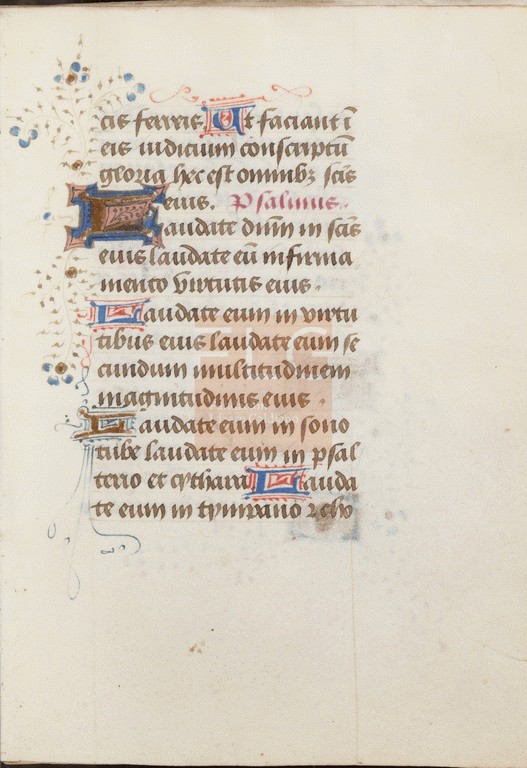 cis ferreis Ut faciant ī
eis iudicium conscriptū
gloria hec est omnibꝫ scīs
eius. Psalmus.
Laudate dnm in scīs
eius laudate eū in firma
mento virtutis eius.
Laudate eum in virtu
tibus eius laudate eum se
cundum multitudinem
magnitudinis eius.
Laudate eum in sono
tube laudate eum in psal
terio et cythara Lauda
te eum in tympano ⁊ cho